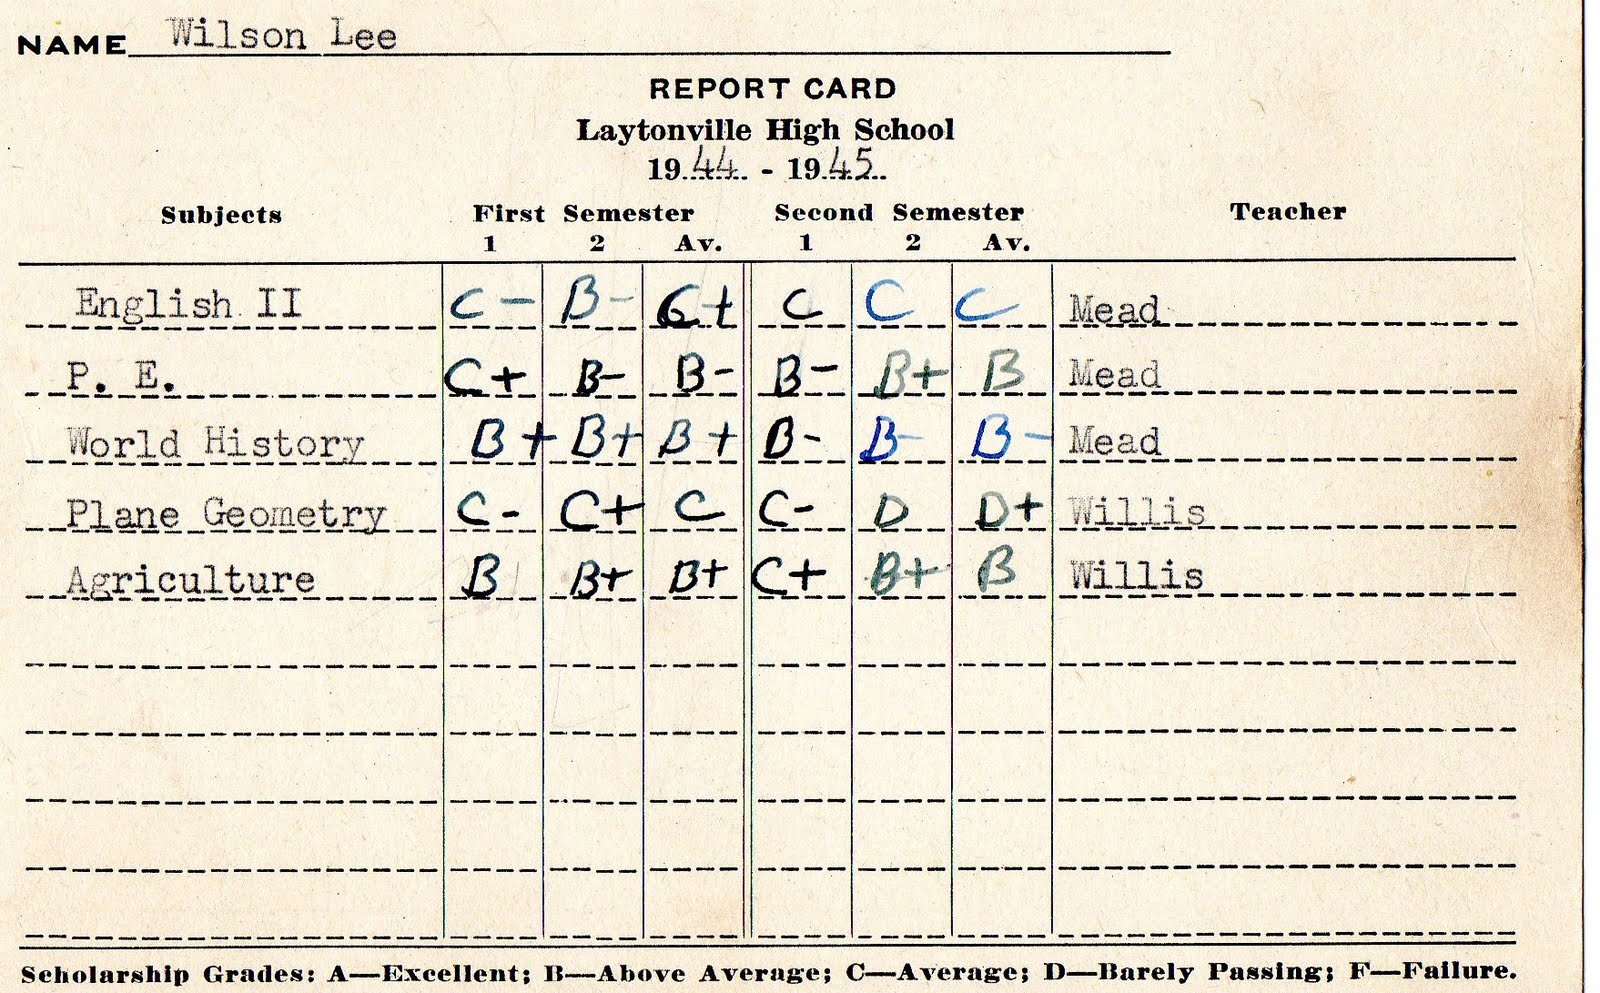 NAME Wilson Lee
REPORT CARD
Laytonville High School
1944 - 1945
Subjects First Semester Second Semester Teacher
1 2 Av. 1 2 Av.
English II C- B- C+ C C C Mead
P. E. C+ B- B- B- B+ B Mead
World History B+ B+ B+ B- B- B- Mead
Plane Geometry C- C+ C C- D D+ Willis
Agriculture B B+ B+ C+ B+ B Willis
Scholarship Grades: A—Excellent; B—Above Average; C—Average; D—Barely Passing; F—Failure.